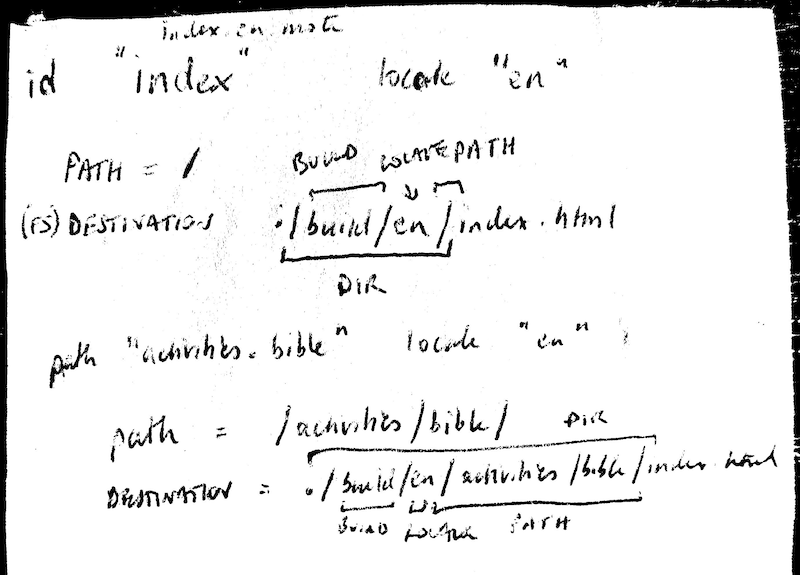 index.en.mote
id "index" locale "en"
PATH = /
BUILD LOCALE PATH
(FS) DESTINATION ./build/en/index.html
DIR
path "activities.bible" locale "en"
path = /activities/bible/
DIR
DESTINATION = ./build/en/activities/bible/index.html
BUILD LOCALE PATH